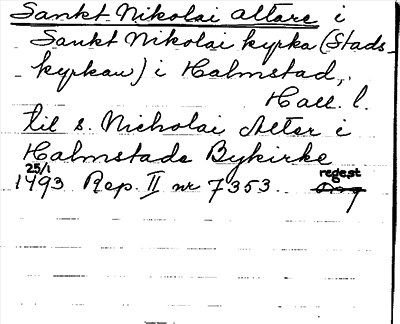 Sankt Nikolai altare i
Sankt Nikolai kyrka (Stads-
kyrkan) i Halmstad,
Hall. l.
til s. Nicholai Alter i
Halmstade Bykirke
25/1
1493. Rep. II nr 7353. regest